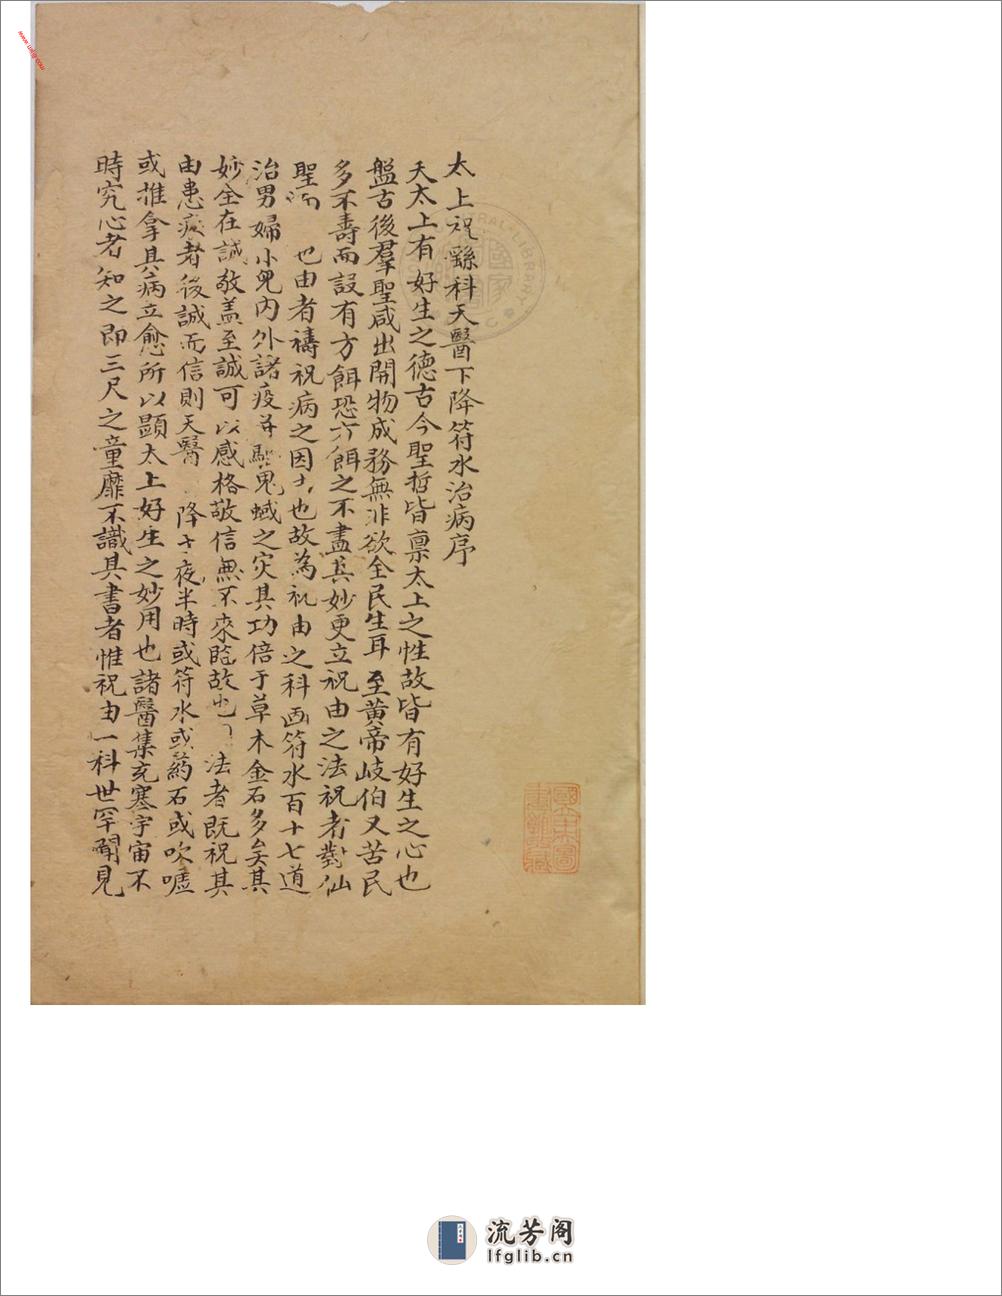 太上祝繇科天醫下降符水治病序
夫太上有好生之德古今聖哲皆禀太上之性故皆有好生之心也
盤古後羣聖咸出開物成務無非欲全民生耳至黄帝岐伯又苦民
多不壽而設有方餌恐方餌之不盡其妙更立祝由之法祝者對仙
聖而 也由者禱祝病之因 也故為祝由之科画符水百十七道
治男婦小兒内外諸疫并驅鬼蜮之灾其功倍于草木金石多矣其
妙全在誠敬盖至誠可以感格敬信無不來臨故也 法者既祝其
由患病者後誠而信則天醫 降于夜半時或符水或藥石或吹噓
或推拿其病立愈所以顯太上好生之妙用也諸醫集充塞宇宙不
時究心者知之即三尺之童靡不識其書者惟祝由一科世罕聞見
國立中央圖
書館藏
CENTRAL LIBRARY
流芳阁
lfglib.cn